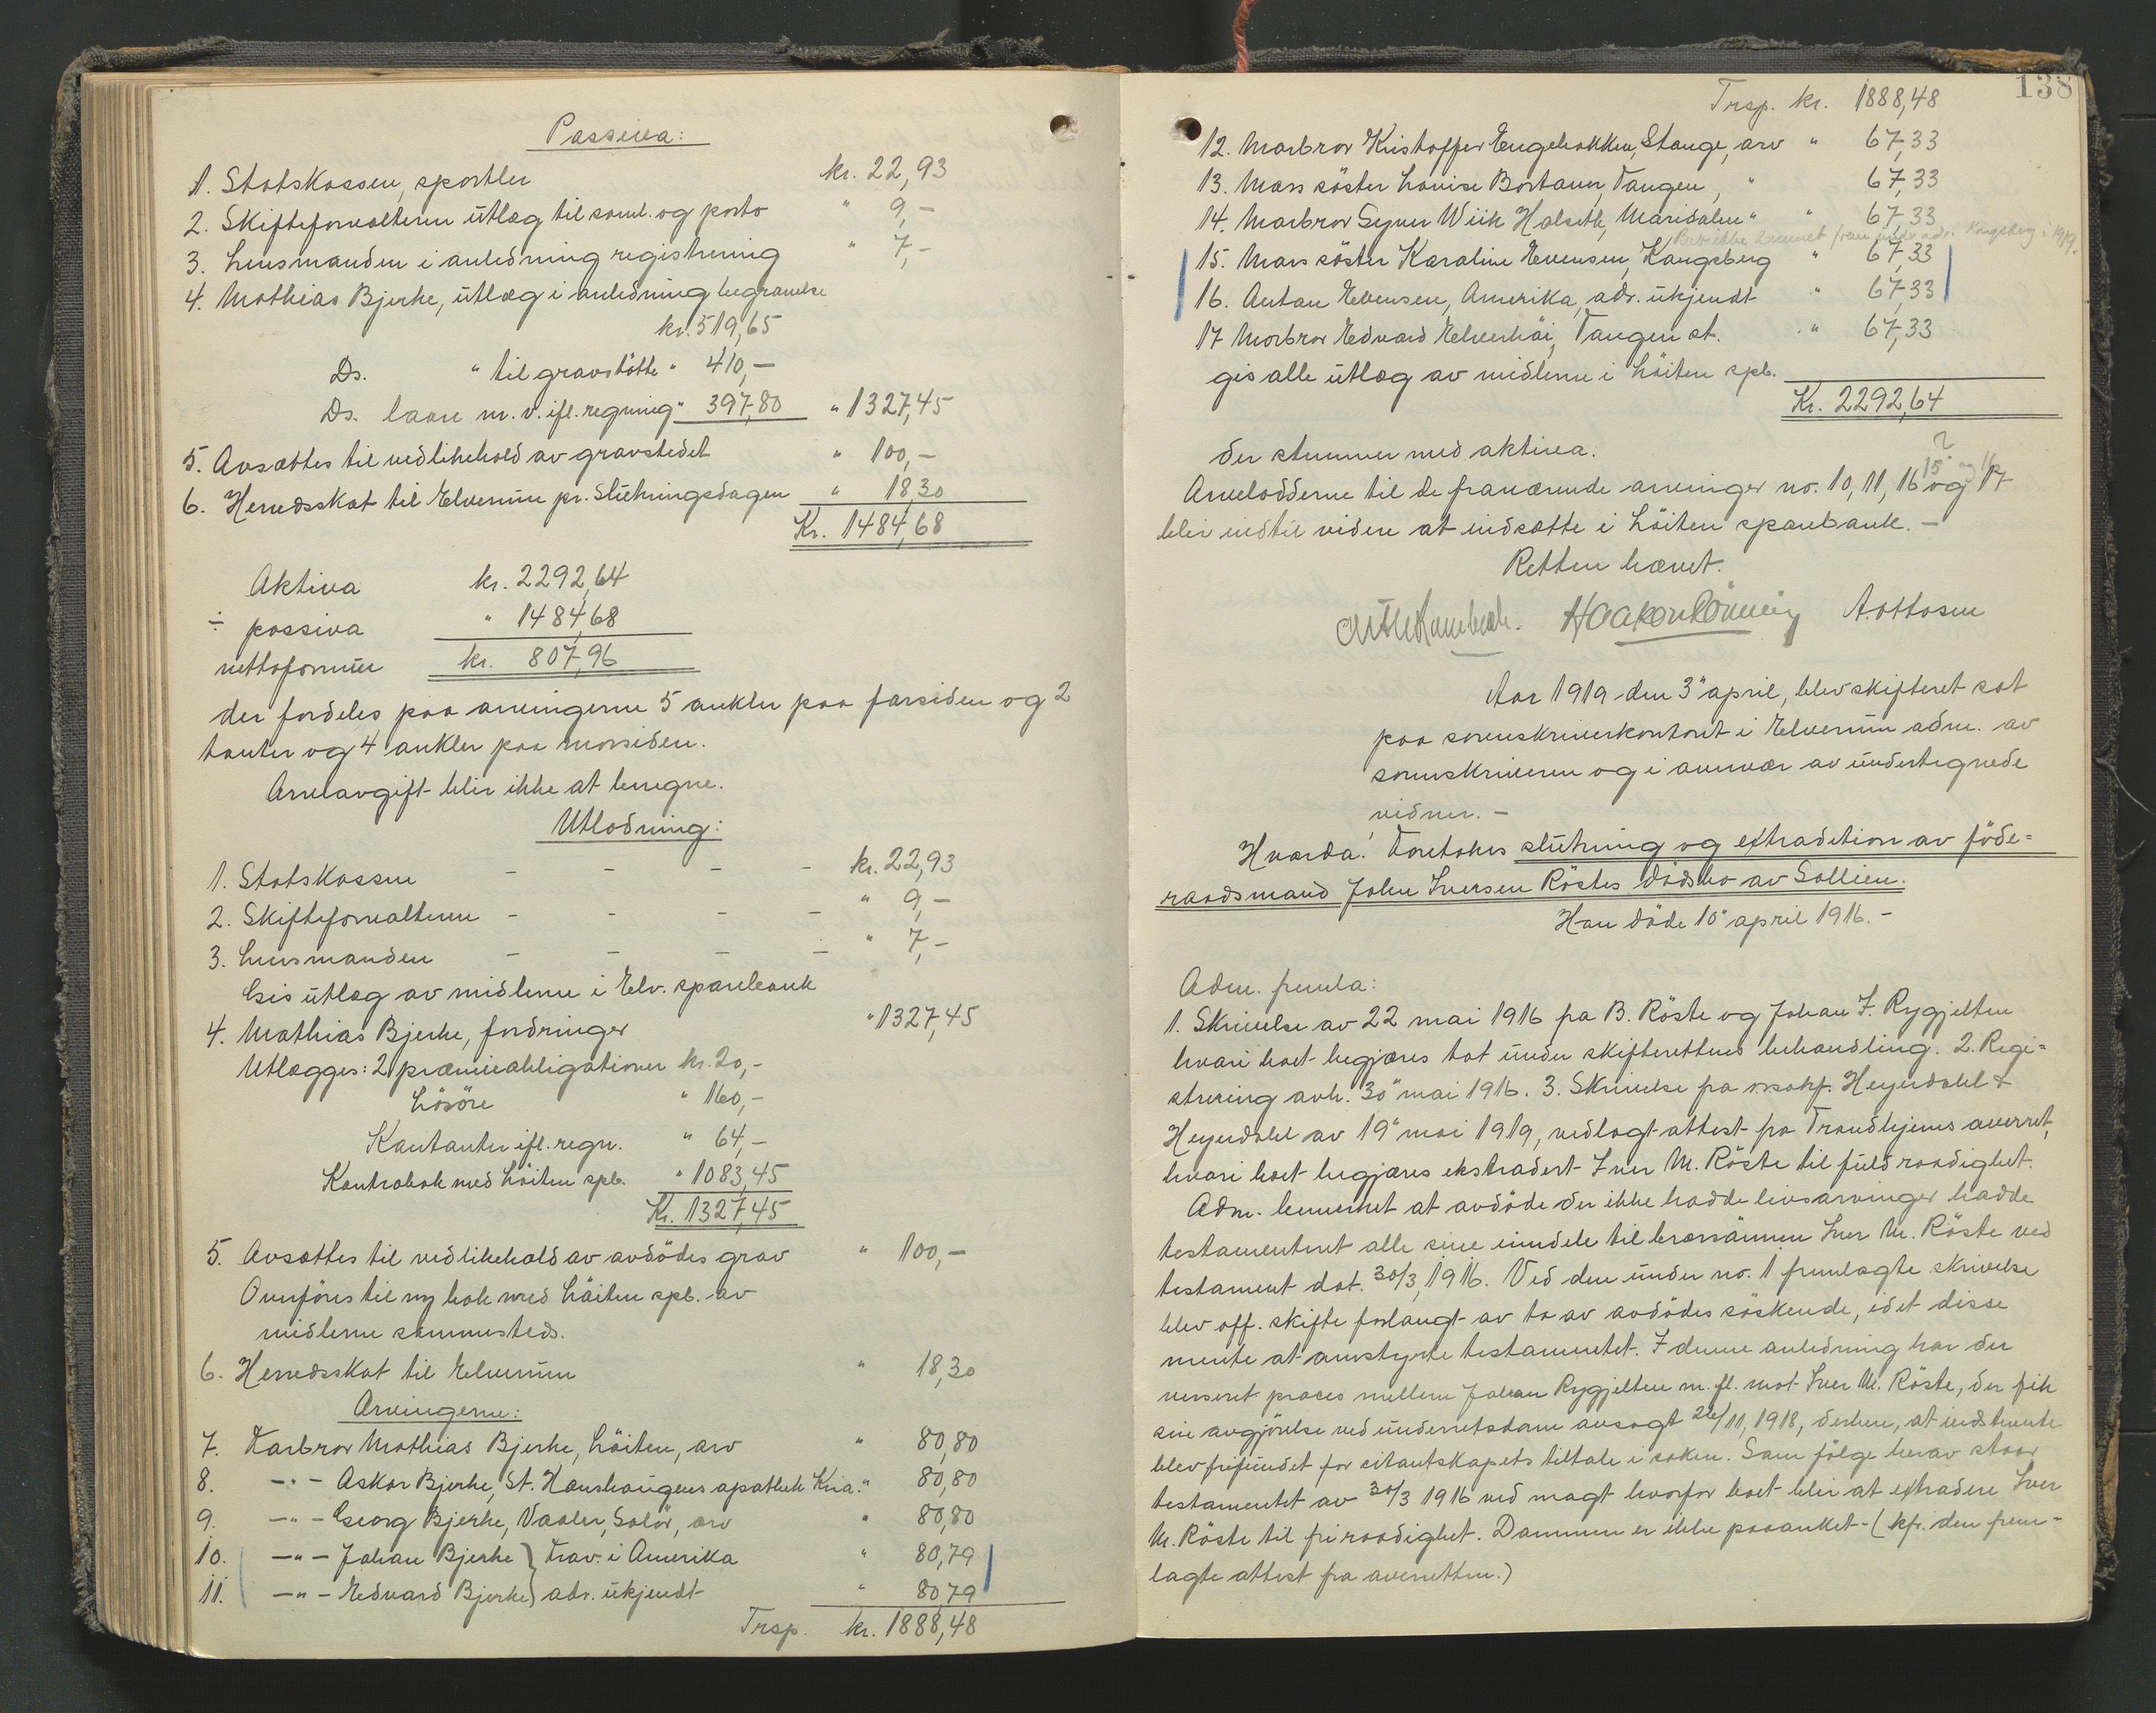 Passiva:
1. Statskassen, sportler kr. 22,93
2. Skifteforvalteren utlæg til saml. og porto " 9,-
3. Lensmanden i anledning registrering " 7,-
4. Mathias Bjerke, utlæg i anledning begravelse
kr. 519,65
Ds. " til gravstötte " 410,-
Ds. laan m. v. ifl. regning " 397,80 " 1327,45
5. Avsættes til vedlikehold av gravstedet " 100,-
6. Herredsskat til Elverum pr. slutningsdagen " 18,30
Kr. 1484,68
Aktiva kr. 2292,64
÷ passiva " 1484,68
nettoformue kr. 807,96
der fordeles paa arvingerne 5 onkler paa farsiden og 2
tanter og 4 onkler paa morsiden.
Arveavgift blir ikke at beregne.
Utlodning:
1. Statskassen - - - - kr. 22,93
2. Skifteforvalteren - - - - " 9,-
3. Lensmanden - - - - " 7,-
Gis utlæg av midlerne i Elv. sparebank
4. Mathias Bjerke, fordringer " 1327,45
Utlægges: 2 præmieobligationer kr. 20,-
Lösöre " 160,-
Kontanter ifl. regn. " 64,-
Kontrabok med Löiten spb. " 1083,45
Kr. 1327,45
5. Avsættes til vedlikehold av avdödes grav " 100,-
Overföres til ny bok med Löiten spb. av
midlerne sammesteds.
6. Herredsskat til Elverum " 18,30
Arvingerne:
7. Farbror Mathias Bjerke, Löiten, arv " 80,80
8. -"- Askar Bjerke, St. Hanshaugens apothek Kria. " 80,80
9. -"- Georg Bjerke, Vaaler, Solör, arv " 80,80
10. -"- Johan Bjerke } frav. i Amerika " 80,79
11. -"- Edvard Bjerke } adr. ukjendt " 80,79
Trsp. kr. 1888,48
138
Trsp. kr. 1888,48
12. Morbror Kristoffer Engebakken, Stange, arv " 67,33
13. Mors söster Louise Bostauen, Tangen, " 67,33
14. Morbror Syver Wiik Holseth, Maridalen " " 67,33
Blev ikke fundet frem under adr. Kongsberg i 1919.
15. Mors söster Karoline Evensen, Kongsberg " 67,33
16. Anton Evensen, Amerika, adr. ukjendt " 67,33
17 Morbror Edvard Elverhöi, Tangen st. " 67,33
gis alle utlæg av midlerne i Löiten spb.
Kr. 2292,64
der stemmer med aktiva.
?
15 og 16
Arvelodderne til de fraværende arvinger no. 10, 11, 16 og 17
blir indtil videre at indsætte i Löiten sparebank. -
Retten hævet.
Haakon Rönning A. Ottosen
Aar 1919 den 3" april, blev skifteret sat
paa sorenskriverkontoret i Elverum adm. av
sorenskriveren og i overvær av undertegnede
vidner. -
Hvorda: Foretokes slutning og extradition av föde=
raadsmand John Iversen Röstes dödsbo av Sollien.
Han döde 10" april 1916. -
Adm. fremla:
1. Skrivelse av 22 mai 1916 fra B. Röste og Johan I. Rygjelten
hvori boet begjæres tat under skifterettens behandling. 2. Regi=
strering avh. 30" mai 1916. 3. Skrivelse fra o.r.sakf. Heyerdahl &
Heyerdahl av 19" mai 1919, vedlagt attest fra Trondhjems overret,
hvori boet begjæres ekstradert Iver M. Röste til fuld raadighet.
Adm. bemerket at avdöde der ikke hadde livsarvinger hadde
testamenteret alle sine eiendele til brorsönnen Iver M. Röste ved
testament dat. 30/3, 1916. Ved den under no. 1 fremlagte skrivelse
blev off. skifte forlangt av to av avdödes söskende, idet disse
mente at omstyrte testamentet. I denne anledning har der
verseret proces mellem Johan Rygjelten m. fl. mot Iver M. Röste, der fik
sin avgjörelse ved underretsdom avsagt 26/11, 1918, derhen, at indstevnte
blev frifundet for citantskapets tiltale i saken. Som fölge herav staar
testamentet av 30/3 1916 ved magt hvorfor boet blir at extradere Iver
M. Röste til fri raadighet. Dommen er ikke paaanket - (kfr. den frem-
lagte attest fra overretten.)